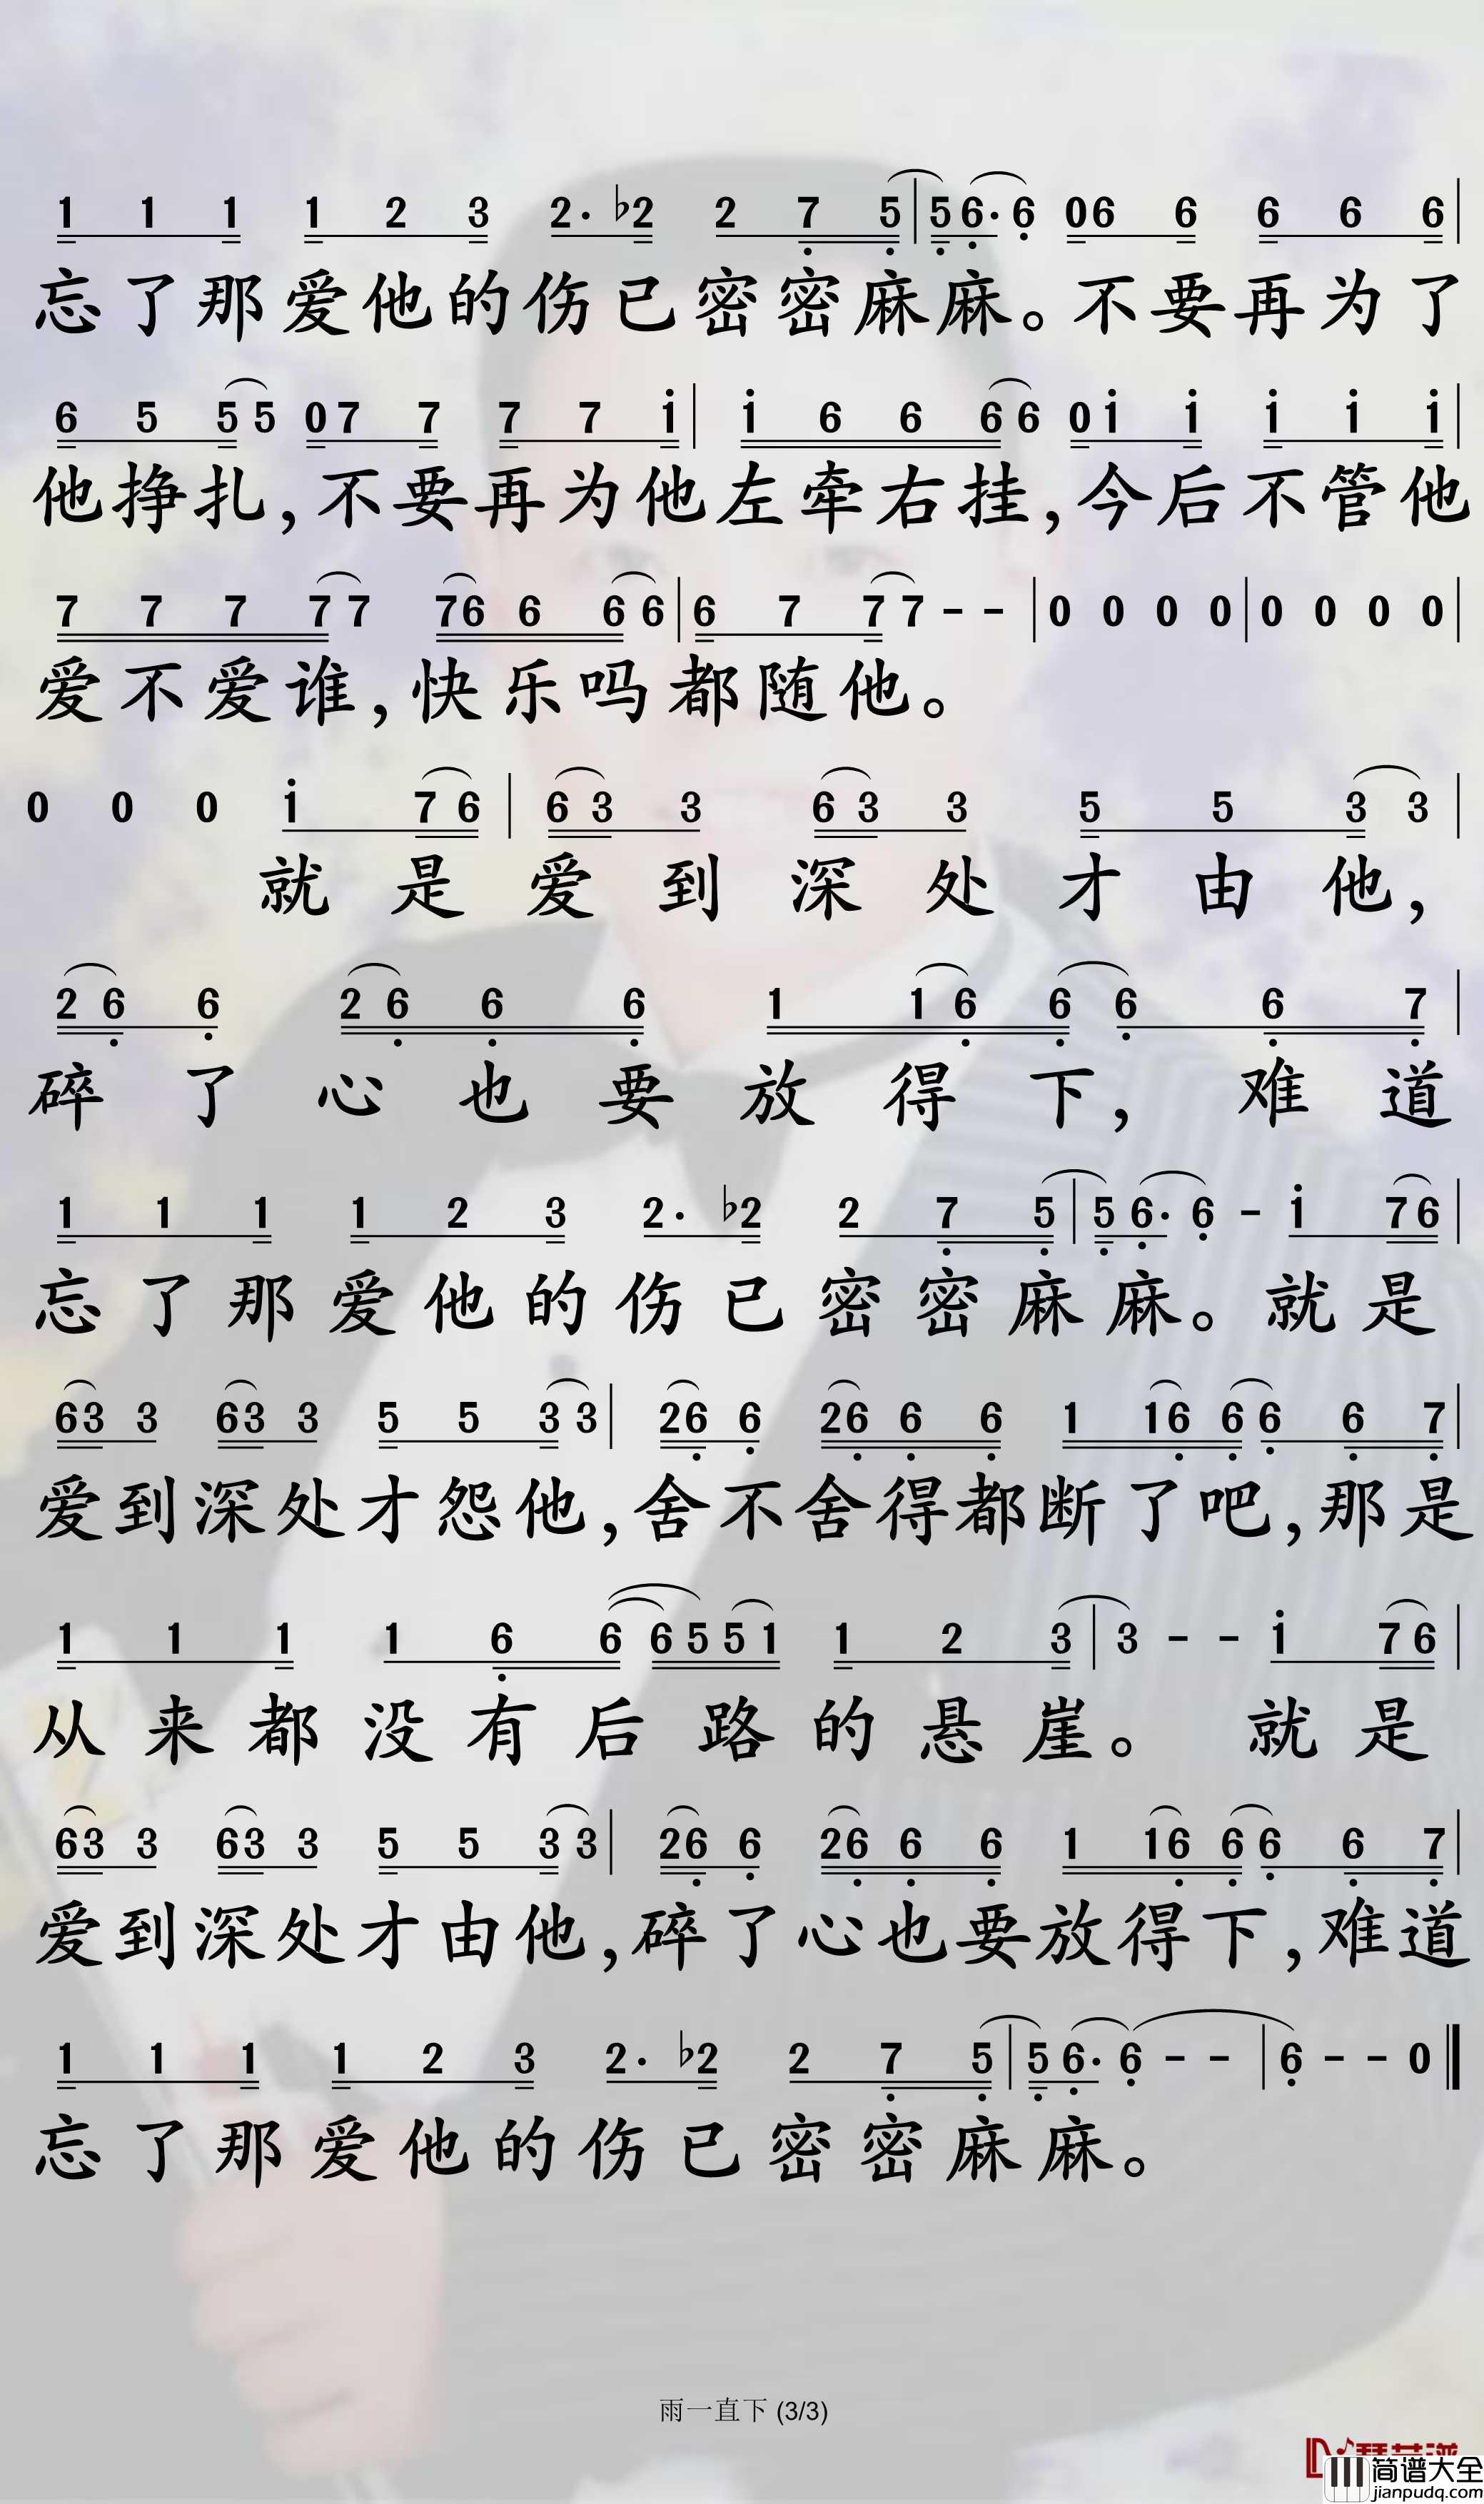 1 1 1 1 2 3 2· ♭2 2 7 5 | 5 6· 6 06 6 6 6 6 |
忘了那爱他的伤已密密麻麻。不要再为了
6 5 5 5 0 7 7 7 7 i | i 6 6 6 6 0 i i i i i |
他挣扎,不要再为他左牵右挂,今后不管他
7 7 7 7 7 76 6 6 6 | 6 7 7 7 - - | 0 0 0 0 | 0 0 0 0 |
爱不爱谁,快乐吗都随他。
0 0 0 i 7 6 | 6 3 3 6 3 3 5 5 3 3 |
就是爱到深处才由他,
2 6 6 2 6 6 6 1 1 6 6 6 6 7 |
碎了心也要放得下,难道
1 1 1 1 2 3 2· ♭2 2 7 5 | 5 6· 6 - i 7 6 |
忘了那爱他的伤已密密麻麻。就是
63 3 63 3 5 5 3 3 | 26 6 26 6 6 1 16 6 6 6 7 |
爱到深处才怨他,舍不舍得都断了吧,那是
1 1 1 1 6 6 6 5 5 1 1 2 3 | 3 - - i 7 6 |
从来都没有后路的悬崖。就是
63 3 63 3 5 5 3 3 | 26 6 26 6 6 1 16 6 6 6 7 |
爱到深处才由他,碎了心也要放得下,难道
1 1 1 1 2 3 2· ♭2 2 7 5 | 5 6· 6 - - | 6 - - 0 ‖
忘了那爱他的伤已密密麻麻。
雨一直下 (3/3)
简谱大全
jianpudq.com